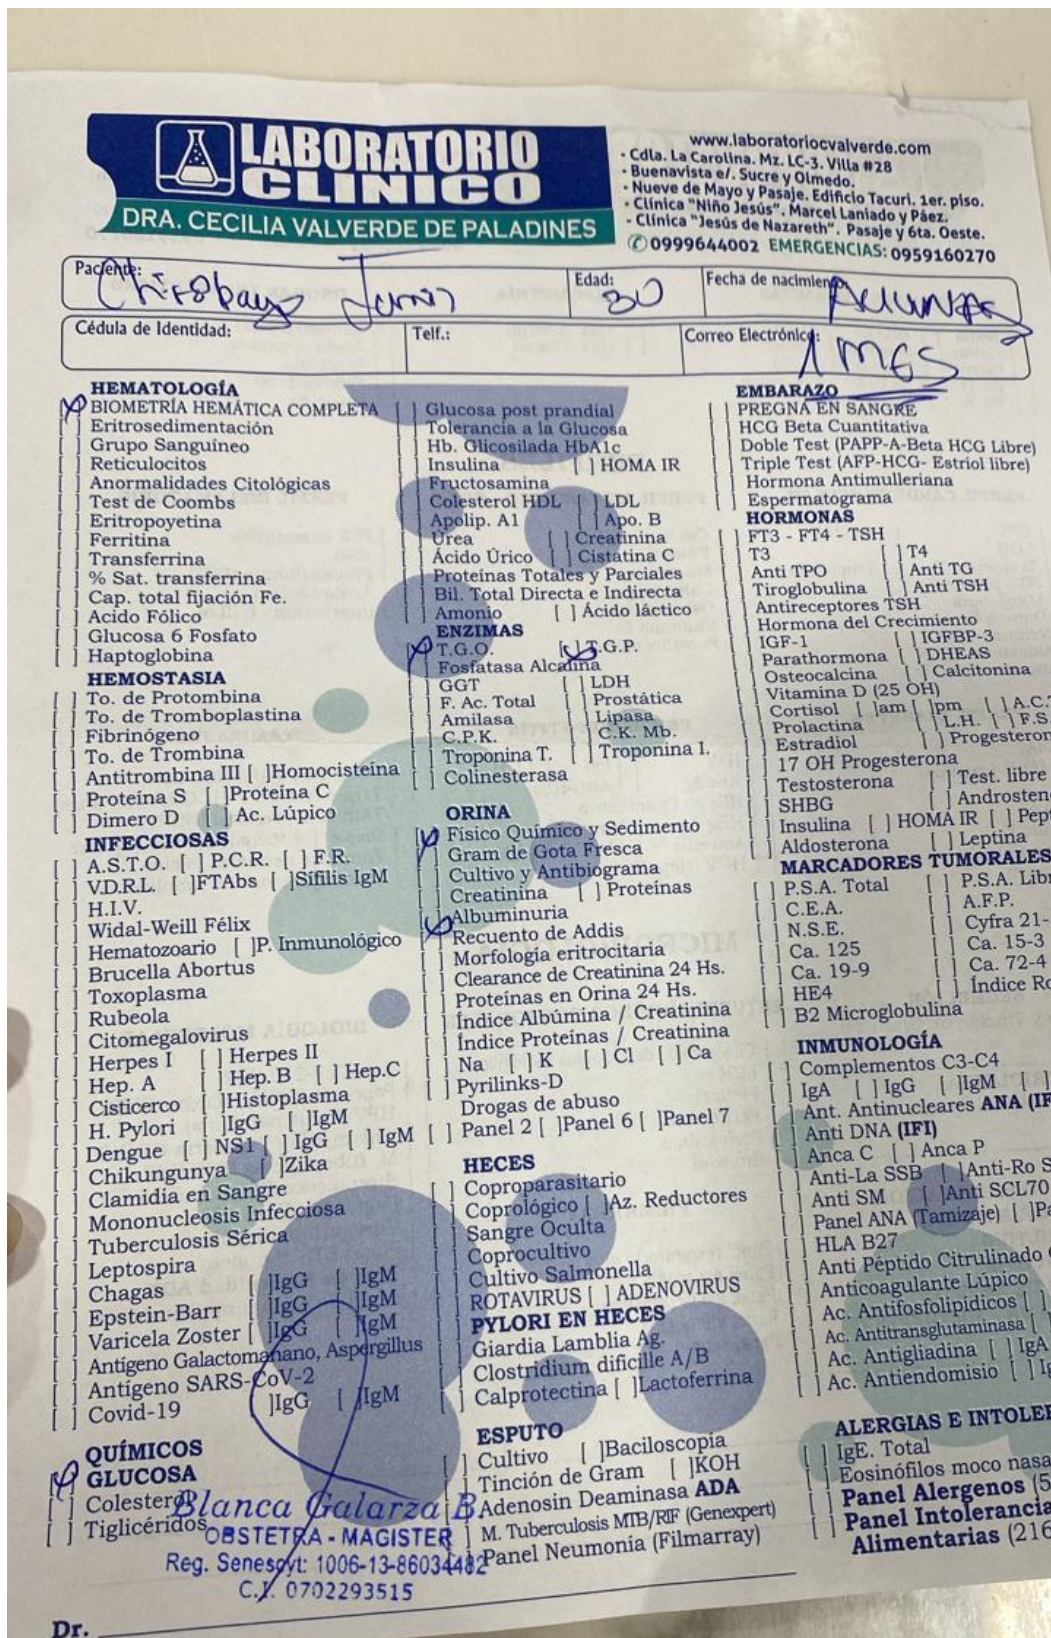 LABORATORIO
CLINICO
DRA. CECILIA VALVERDE DE PALADINES
www.laboratoriocvalverde.com
- Cdla. La Carolina. Mz. LC-3. Villa #28
- Buenavista e/. Sucre y Olmedo.
- Nueve de Mayo y Pasaje. Edificio Tacuri. 1er. piso.
- Clínica "Niño Jesús". Marcel Laniado y Páez.
- Clínica "Jesús de Nazareth". Pasaje y 6ta. Oeste.
0999644002 EMERGENCIAS: 0959160270
Paciente:
Edad: 30
Fecha de nacimiento:
Cédula de Identidad:
Telf.:
Correo Electrónico:
1 MES
HEMATOLOGÍA
[ ] BIOMETRÍA HEMÁTICA COMPLETA
[ ] Eritrosedimentación
[ ] Grupo Sanguíneo
[ ] Reticulocitos
[ ] Anormalidades Citológicas
[ ] Test de Coombs
[ ] Eritropoyetina
[ ] Ferritina
[ ] Transferrina
[ ] % Sat. transferrina
[ ] Cap. total fijación Fe.
[ ] Acido Fólico
[ ] Glucosa 6 Fosfato
[ ] Haptoglobina
HEMOSTASIA
[ ] To. de Protombina
[ ] To. de Tromboplastina
[ ] Fibrinógeno
[ ] To. de Trombina
[ ] Antitrombina III [ ]Homocisteína
[ ] Proteína S [ ]Proteína C
[ ] Dimero D [ ] Ac. Lúpico
INFECCIOSAS
[ ] A.S.T.O. [ ] P.C.R. [ ] F.R.
[ ] V.D.R.L. [ ]FTAbs [ ]Sífilis IgM
[ ] H.I.V.
[ ] Widal-Weill Félix
[ ] Hematozoario [ ]P. Inmunológico
[ ] Brucella Abortus
[ ] Toxoplasma
[ ] Rubeola
[ ] Citomegalovirus
[ ] Herpes I [ ] Herpes II
[ ] Hep. A [ ] Hep. B [ ] Hep.C
[ ] Cisticerco [ ]Histoplasma
[ ] H. Pylori [ ]IgG [ ]IgM
[ ] Dengue [ ] NS1 [ ] IgG [ ] IgM
[ ] Chikungunya [ ]Zika
[ ] Clamidia en Sangre
[ ] Mononucleosis Infecciosa
[ ] Tuberculosis Sérica
[ ] Leptospira
[ ] Chagas [ ]IgG [ ]IgM
[ ] Epstein-Barr [ ]IgG [ ]IgM
[ ] Varicela Zoster [ ]IgG [ ]IgM
[ ] Antígeno Galactomanano, Aspergillus
[ ] Antígeno SARS-CoV-2
[ ] Covid-19 ]IgG [ ]IgM
QUÍMICOS
[ ] GLUCOSA
[ ] Colesterol
[ ] Tiglicéridos
[ ] Glucosa post prandial
[ ] Tolerancia a la Glucosa
[ ] Hb. Glicosilada HbA1c
[ ] Insulina [ ] HOMA IR
[ ] Fructosamina
[ ] Colesterol HDL [ ] LDL
[ ] Apolip. A1 [ ] Apo. B
[ ] Úrea [ ] Creatinina
[ ] Ácido Úrico [ ] Cistatina C
[ ] Proteínas Totales y Parciales
[ ] Bil. Total Directa e Indirecta
[ ] Amonio [ ] Ácido láctico
ENZIMAS
[ ] T.G.O. [ ] T.G.P.
[ ] Fosfatasa Alcalina
[ ] GGT [ ] LDH
[ ] F. Ac. Total [ ] Prostática
[ ] Amilasa [ ] Lipasa
[ ] C.P.K. [ ] C.K. Mb.
[ ] Troponina T. [ ] Troponina I.
[ ] Colinesterasa
ORINA
[ ] Físico Químico y Sedimento
[ ] Gram de Gota Fresca
[ ] Cultivo y Antibiograma
[ ] Creatinina [ ] Proteínas
[ ] Albuminuria
[ ] Recuento de Addis
[ ] Morfología eritrocitaria
[ ] Clearance de Creatinina 24 Hs.
[ ] Proteínas en Orina 24 Hs.
[ ] Índice Albúmina / Creatinina
[ ] Índice Proteínas / Creatinina
[ ] Na [ ] K [ ] Cl [ ] Ca
[ ] Pyrilinks-D
Drogas de abuso
[ ] Panel 2 [ ]Panel 6 [ ]Panel 7
HECES
[ ] Coproparasitario
[ ] Coprológico [ ]Az. Reductores
[ ] Sangre Oculta
[ ] Coprocultivo
[ ] Cultivo Salmonella
[ ] ROTAVIRUS [ ] ADENOVIRUS
[ ] PYLORI EN HECES
[ ] Giardia Lamblia Ag.
[ ] Clostridium dificille A/B
[ ] Calprotectina [ ]Lactoferrina
ESPUTO
[ ] Cultivo [ ]Baciloscopía
[ ] Tinción de Gram [ ]KOH
[ ] Adenosin Deaminasa ADA
[ ] M. Tuberculosis MTB/RIF (Genexpert)
[ ] Panel Neumonía (Filmarray)
EMBARAZO
[ ] PREGNA EN SANGRE
[ ] HCG Beta Cuantitativa
[ ] Doble Test (PAPP-A-Beta HCG Libre)
[ ] Triple Test (AFP-HCG- Estriol libre)
[ ] Hormona Antimulleriana
[ ] Espermatograma
HORMONAS
[ ] FT3 - FT4 - TSH
[ ] T3 [ ] T4
[ ] Anti TPO [ ] Anti TG
[ ] Tiroglobulina [ ] Anti TSH
[ ] Antireceptores TSH
[ ] Hormona del Crecimiento
[ ] IGF-1 [ ] IGFBP-3
[ ] Parathormona [ ] DHEAS
[ ] Osteocalcina [ ] Calcitonina
[ ] Vitamina D (25 OH)
[ ] Cortisol [ ]am [ ]pm [ ] A.C.
[ ] Prolactina [ ] L.H. [ ] F.S.
[ ] Estradiol [ ] Progesteron
[ ] 17 OH Progesterona
[ ] Testosterona [ ] Test. libre
[ ] SHBG [ ] Androsten
[ ] Insulina [ ] HOMA IR [ ] Pep
[ ] Aldosterona [ ] Leptina
MARCADORES TUMORALES
[ ] P.S.A. Total [ ] P.S.A. Lib
[ ] C.E.A. [ ] A.F.P.
[ ] N.S.E. [ ] Cyfra 21-
[ ] Ca. 125 [ ] Ca. 15-3
[ ] Ca. 19-9 [ ] Ca. 72-4
[ ] HE4 [ ] Índice Ro
[ ] B2 Microglobulina
INMUNOLOGÍA
[ ] Complementos C3-C4
[ ] IgA [ ] IgG [ ]IgM [ ]
[ ] Ant. Antinucleares ANA (IF
[ ] Anti DNA (IFI)
[ ] Anca C [ ] Anca P
[ ] Anti-La SSB [ ]Anti-Ro S
[ ] Anti SM [ ]Anti SCL70
[ ] Panel ANA (Tamizaje) [ ]Pa
[ ] HLA B27
[ ] Anti Péptido Citrulinado
[ ] Anticoagulante Lúpico
[ ] Ac. Antifosfolipídicos [ ]
[ ] Ac. Antitransglutaminasa [
[ ] Ac. Antigliadina [ ] IgA
[ ] Ac. Antiendomisio [ ] Ig
ALERGIAS E INTOLER
[ ] IgE. Total
[ ] Eosinófilos moco nasa
[ ] Panel Alergenos (5
[ ] Panel Intolerancia
Alimentarias (216
Blanca Galarza B
OBSTETRA - MAGISTER
Reg. Senescyt: 1006-13-86034482
C.I. 0702293515
Dr.